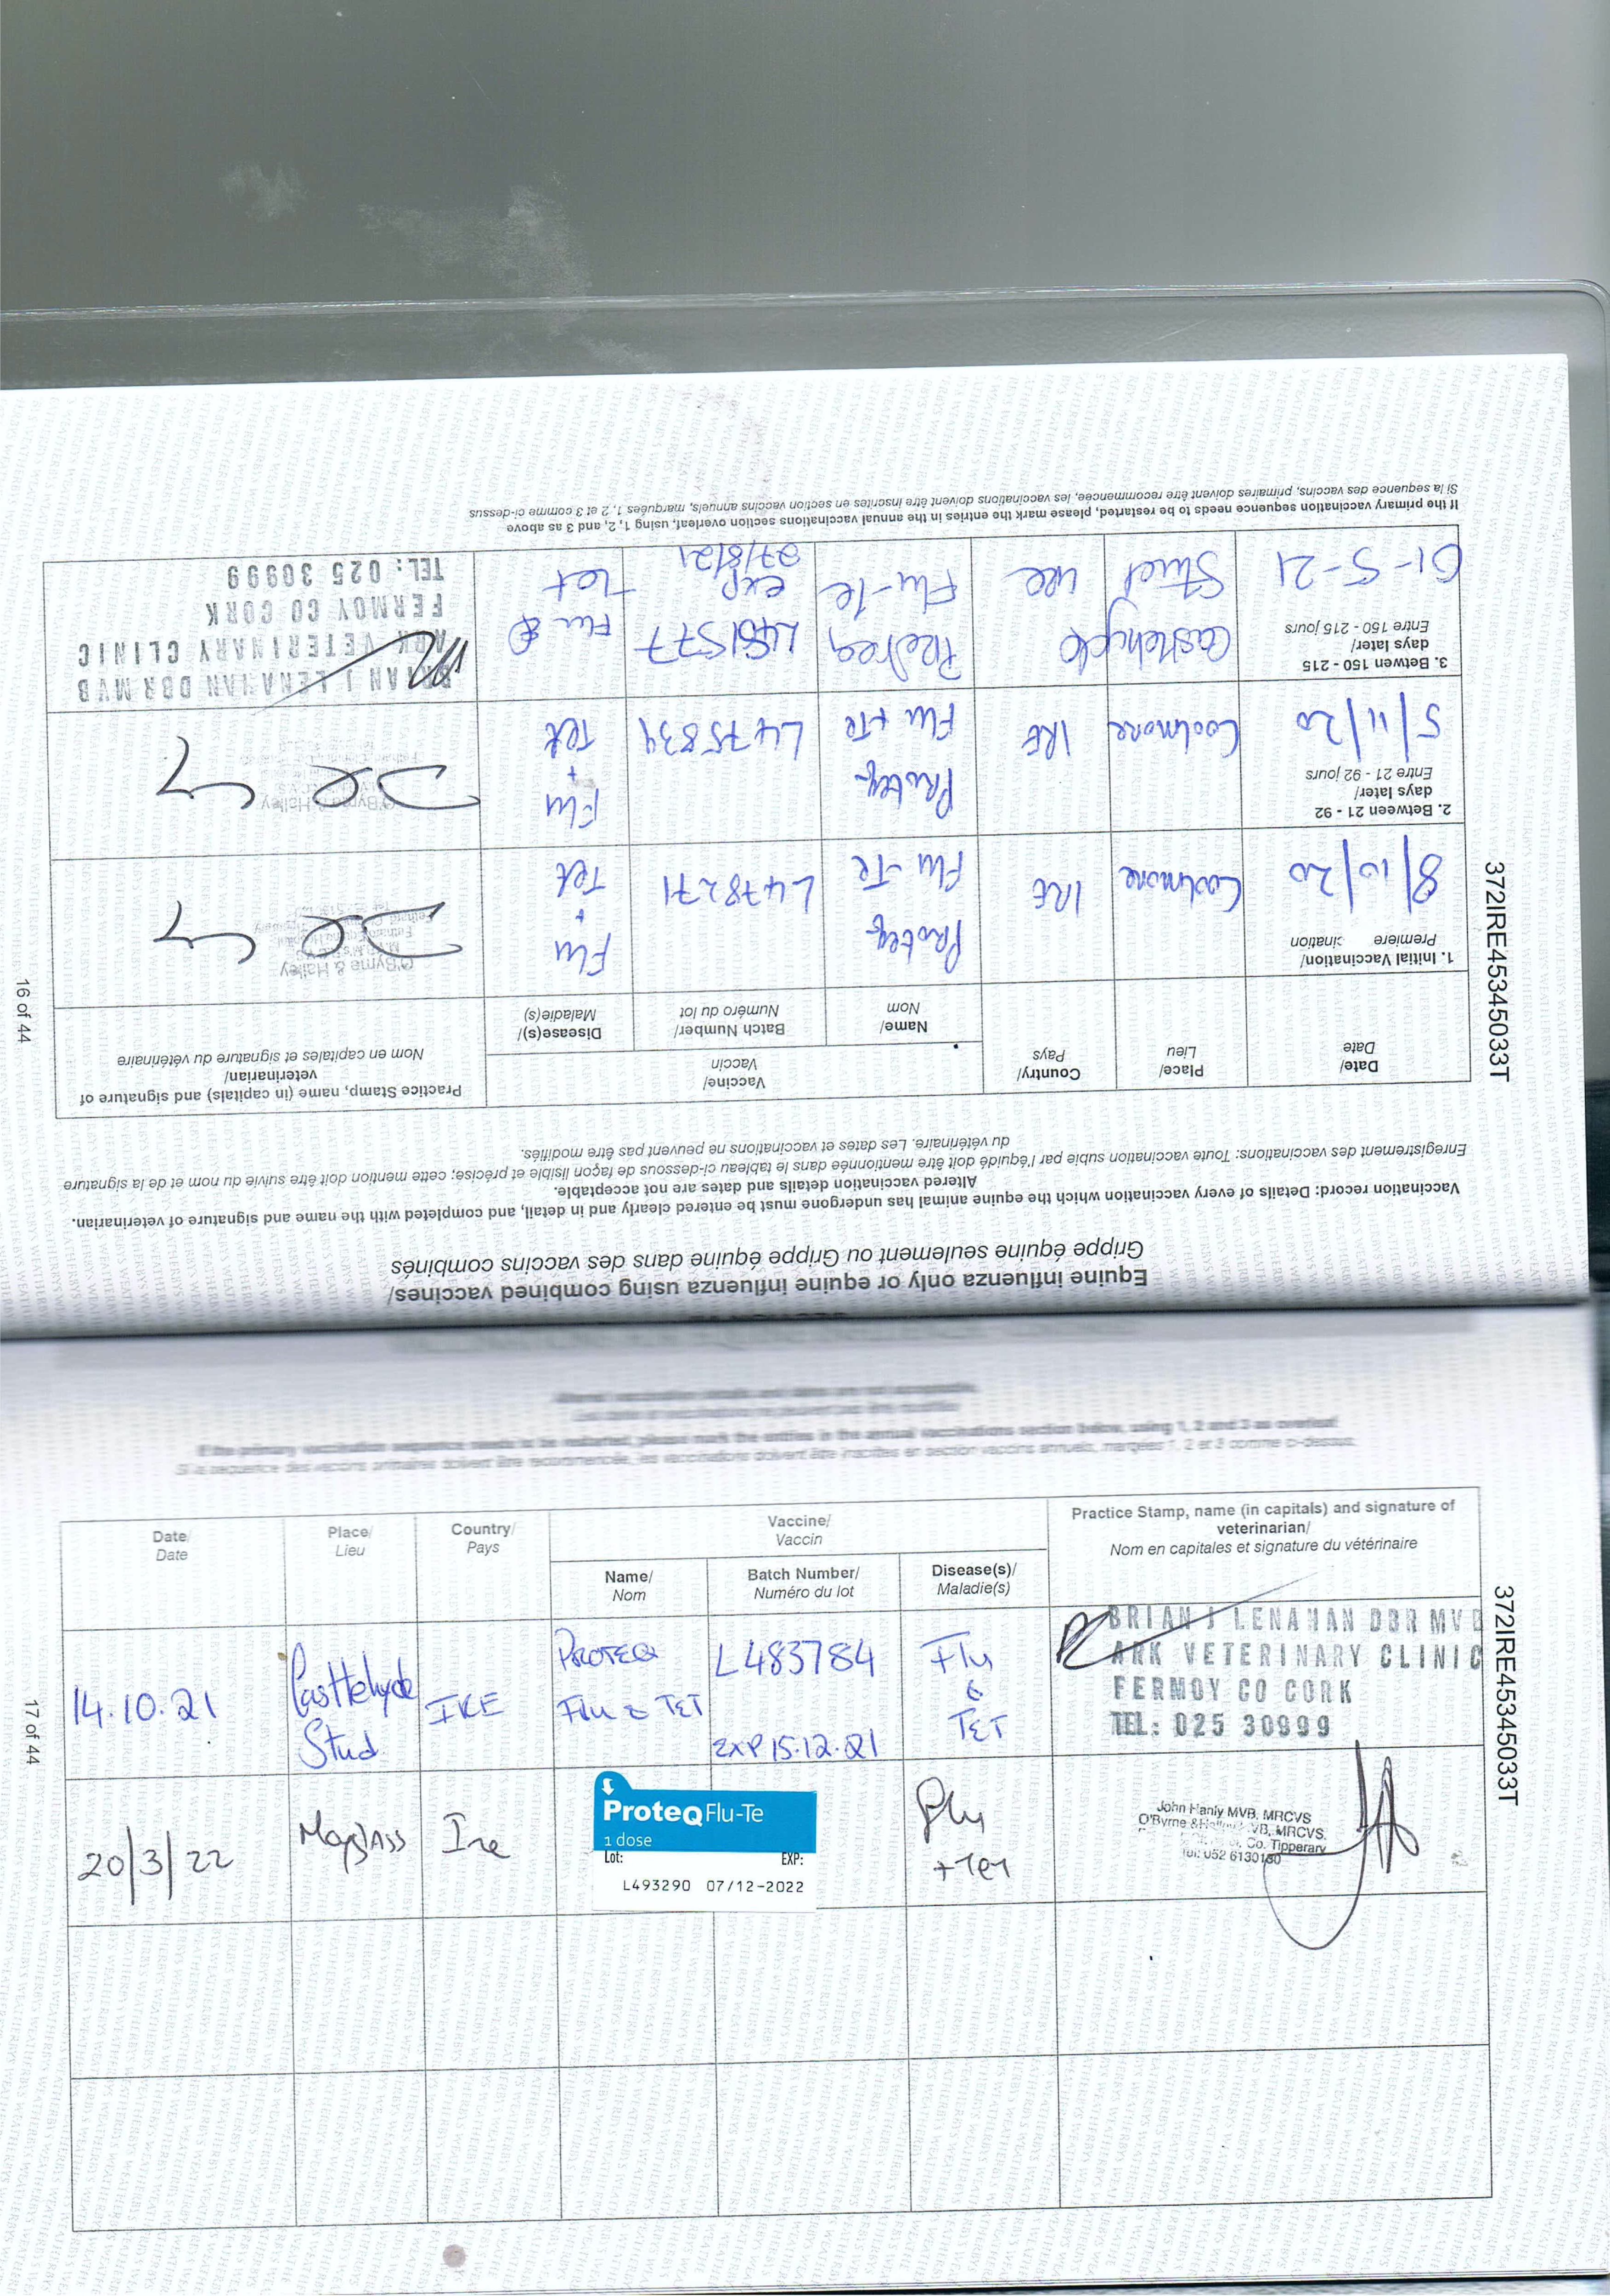 Equine influenza only or equine influenza using combined vaccines/
Grippe équine seulement ou Grippe équine dans des vaccins combinés
Vaccination record: Details of every vaccination which the equine animal has undergone must be entered clearly and in detail, and completed with the name and signature of veterinarian.
Altered vaccination details and dates are not acceptable.
Enregistrement des vaccinations: Toute vaccination subie par l'équidé doit être mentionnée dans le tableau ci-dessous de façon lisible et précise; cette mention doit être suivie du nom et de la signature
du vétérinaire. Les dates et vaccinations ne peuvent pas être modifiés.
Date/
Date
Place/
Lieu
Country/
Pays
Vaccine/
Vaccin
Name/
Nom
Batch Number/
Numéro du lot
Disease(s)/
Maladie(s)
Practice Stamp, name (in capitals) and signature of
veterinarian/
Nom en capitales et signature du vétérinaire
1. Initial Vaccination/
Premiere cination
8/10/20
Coolmore
IRE
Proteq
Flu-Te
L478271
Flu
+
Tet
O'Byrne & Halley
2. Between 21 - 92
days later/
Entre 21 - 92 jours
5/11/20
Coolmore
IRE
Proteq
Flu + Te
L475839
Flu
+
Tet
O'Byrne & Halley
3. Betwen 150 - 215
days later/
Entre 150 - 215 jours
01-5-21
Castlehyde
Stud
Proteq
Flu-Te
L481577
exp
27/8/21
Flu &
Tet
BRIAN J LENAHAN DBR MVB
ARK VETERINARY CLINIC
FERMOY CO CORK
TEL: 025 30999
If the primary vaccination sequence needs to be restarted, please mark the entries in the annual vaccinations section overleaf, using 1, 2, and 3 as above
Si la sequence des vaccins, primaires doivent être recommencée, les vaccinations doivent être inscrites en section vaccins annuels, marquées 1, 2 et 3 comme ci-dessus
16 of 44
372IRE45345033T
If the primary vaccination sequence needs to be restarted, please mark the entries in the annual vaccinations section below, using 1, 2 and 3 as overleaf.
Date/
Date
Place/
Lieu
Country/
Pays
Vaccine/
Vaccin
Name/
Nom
Batch Number/
Numéro du lot
Disease(s)/
Maladie(s)
Practice Stamp, name (in capitals) and signature of
veterinarian/
Nom en capitales et signature du vétérinaire
14.10.21
Castlehyde
Stud
IRE
PROTEQ
Flu & TET
L483784
EXP 15.12.21
Flu
&
TET
BRIAN J LENAHAN DBR MVB
ARK VETERINARY CLINIC
FERMOY CO CORK
TEL: 025 30999
20/3/22
Ire
ProteqFlu-Te
1 dose
Lot: EXP:
L493290 07/12-2022
Flu
+Tet
John Hanly MVB, MRCVS
O'Byrne & VB, MRCVS.
Co. Tipperary
Tel: 052 6130180
17 of 44
372IRE45345033T